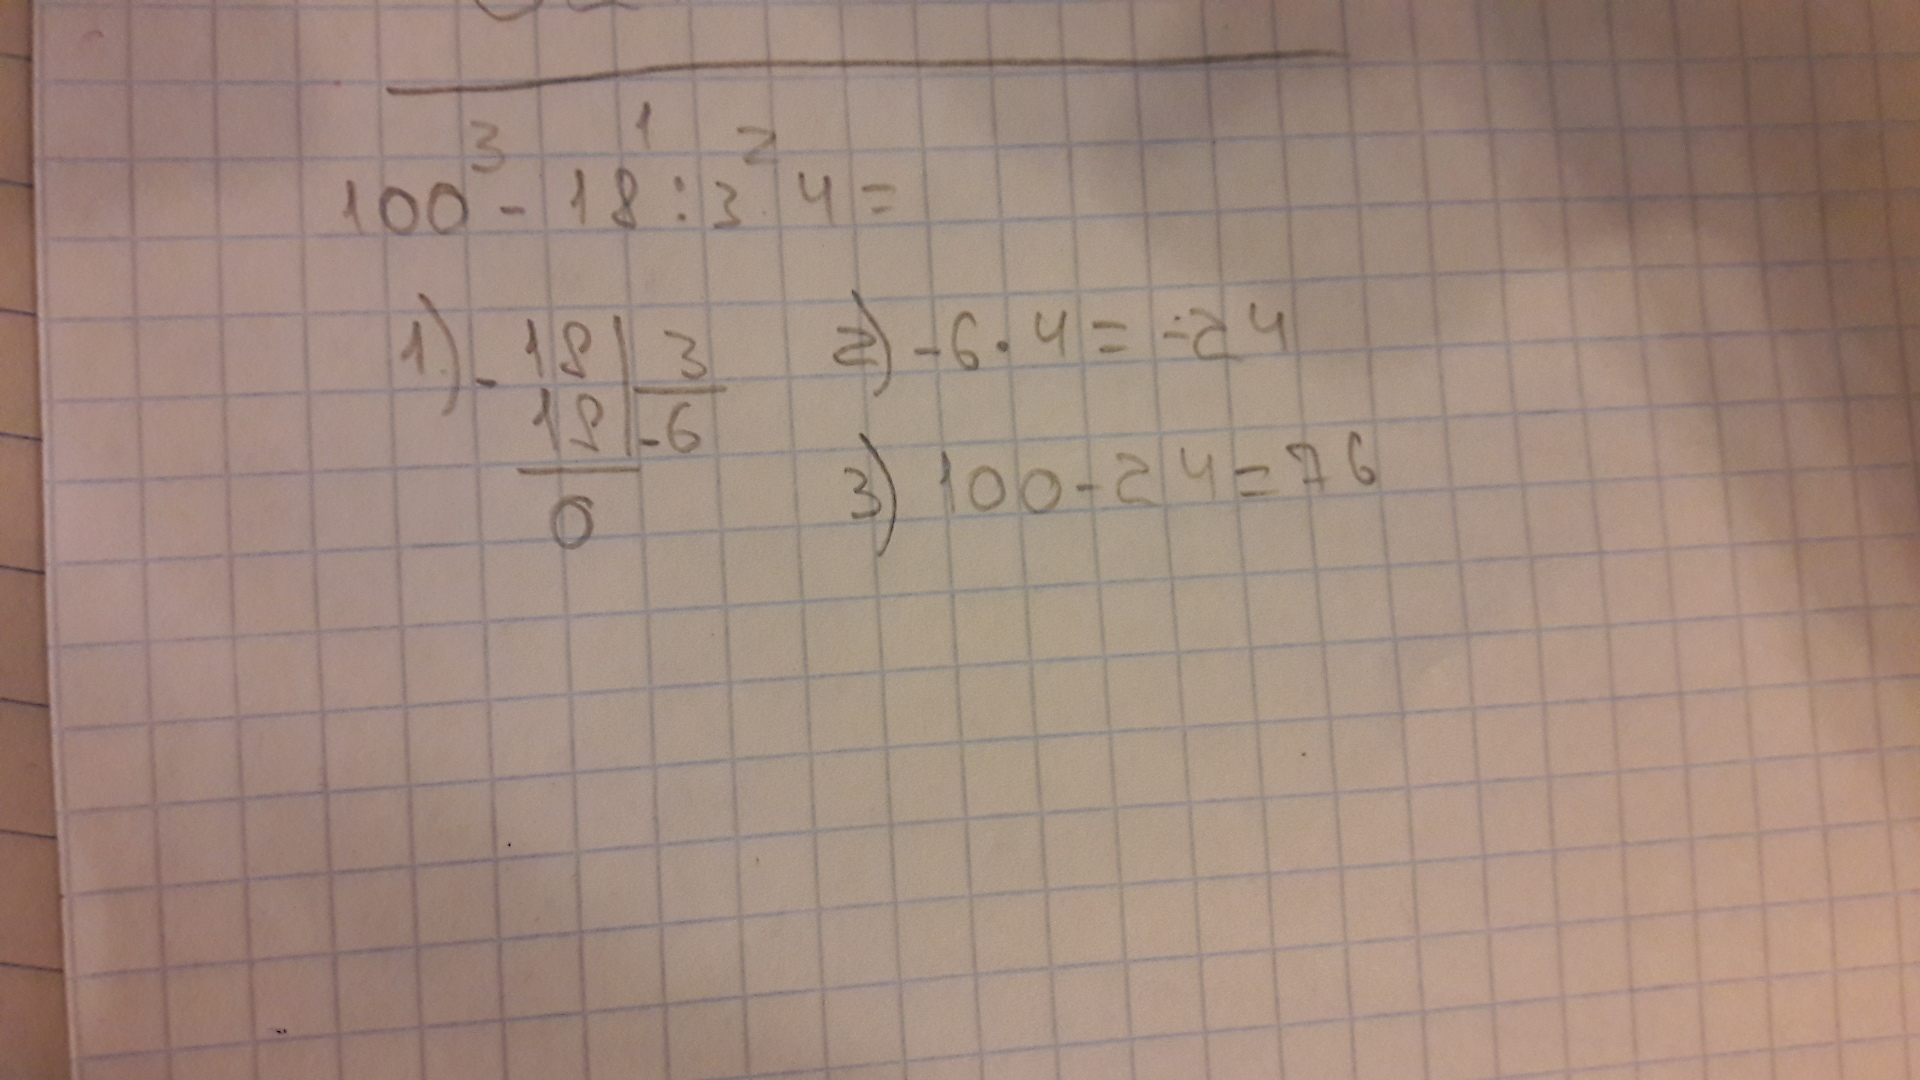 3 1 2
100 - 18 : 3 · 4 =
1) - 18 | 3 2) - 6 · 4 = - 24
18 | - 6
3) 100 - 24 = 76
0